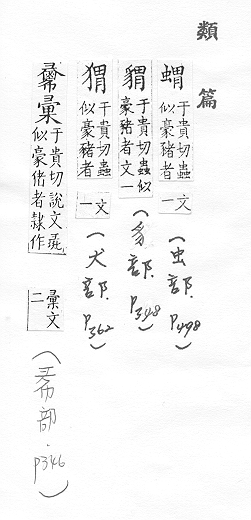 類篇
蝟于貴切蟲似豪豬者 文一
(虫部.P498)
貒于貴切蟲似豪豬者文一
(豸部.P348)
猬于貴切蟲似豪豬者 文一
(犬部.P362)
彙于貴切說文蟲似豪豬者隸作彙文二
(㣇部.P346)